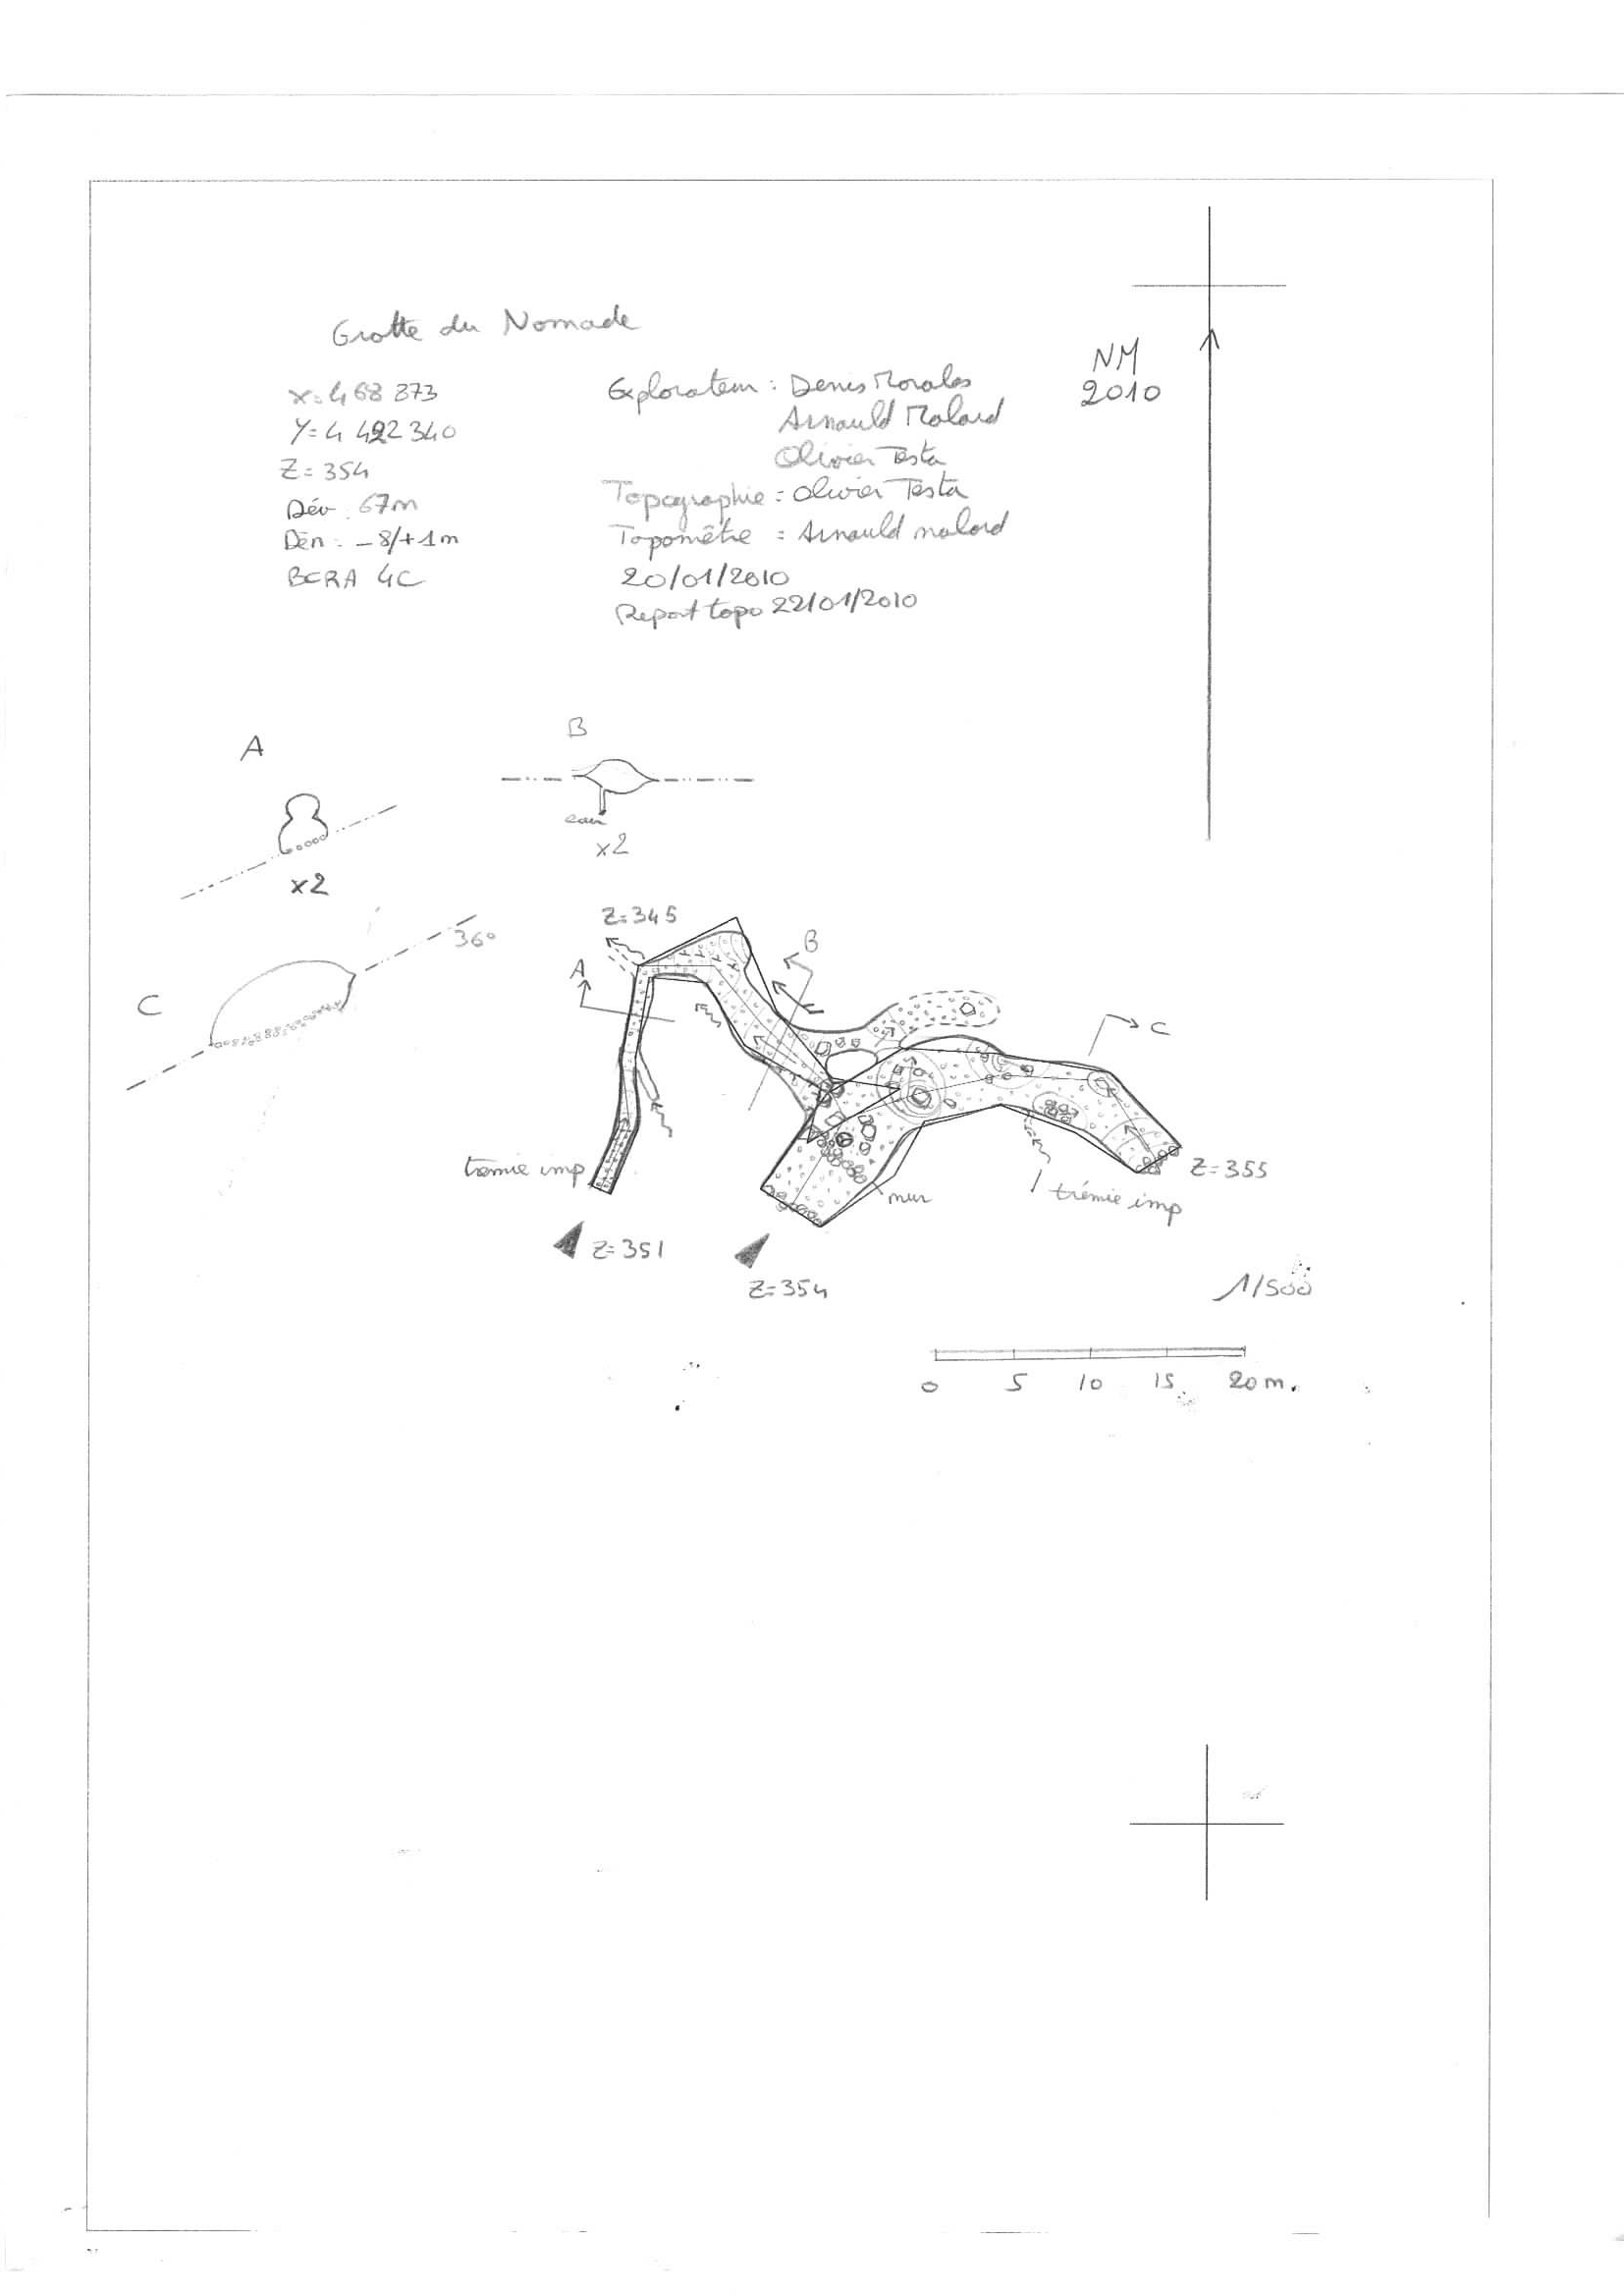 Grotte du Nomade
X=468 373
Y=4 422 340
Z=354
Dév : 67m
Dén : -8/+1m
BCRA 4C
Explorateur : Denis Morales
Arnauld Malard
Olivier Testa
Topographie = Olivier Testa
Topomètre = Arnauld malard
20/01/2010
Report topo 22/01/2010
NM
2010
A
x2
B
eau
x2
C
36°
Z=345
A
B
C
trémie imp
mur
trémie imp
Z=355
Z=351
Z=354
1/500
0 5 10 15 20 m.